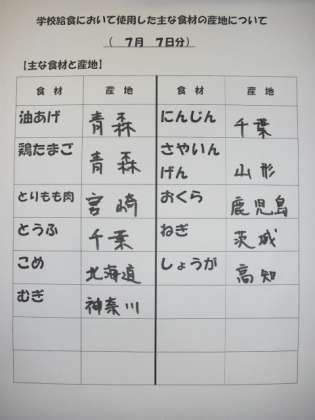 学校給食において使用した主な食材の産地について
（ 7月 7日分）
【主な食材と産地】
食材 産地 食材 産地
油あげ 青森 にんじん 千葉
鶏たまご 青森 さやいん
げん 山形
とりもも肉 宮崎 おくら 鹿児島
とうふ 千葉 ねぎ 茨城
こめ 北海道 しょうが 高知
むぎ 神奈川